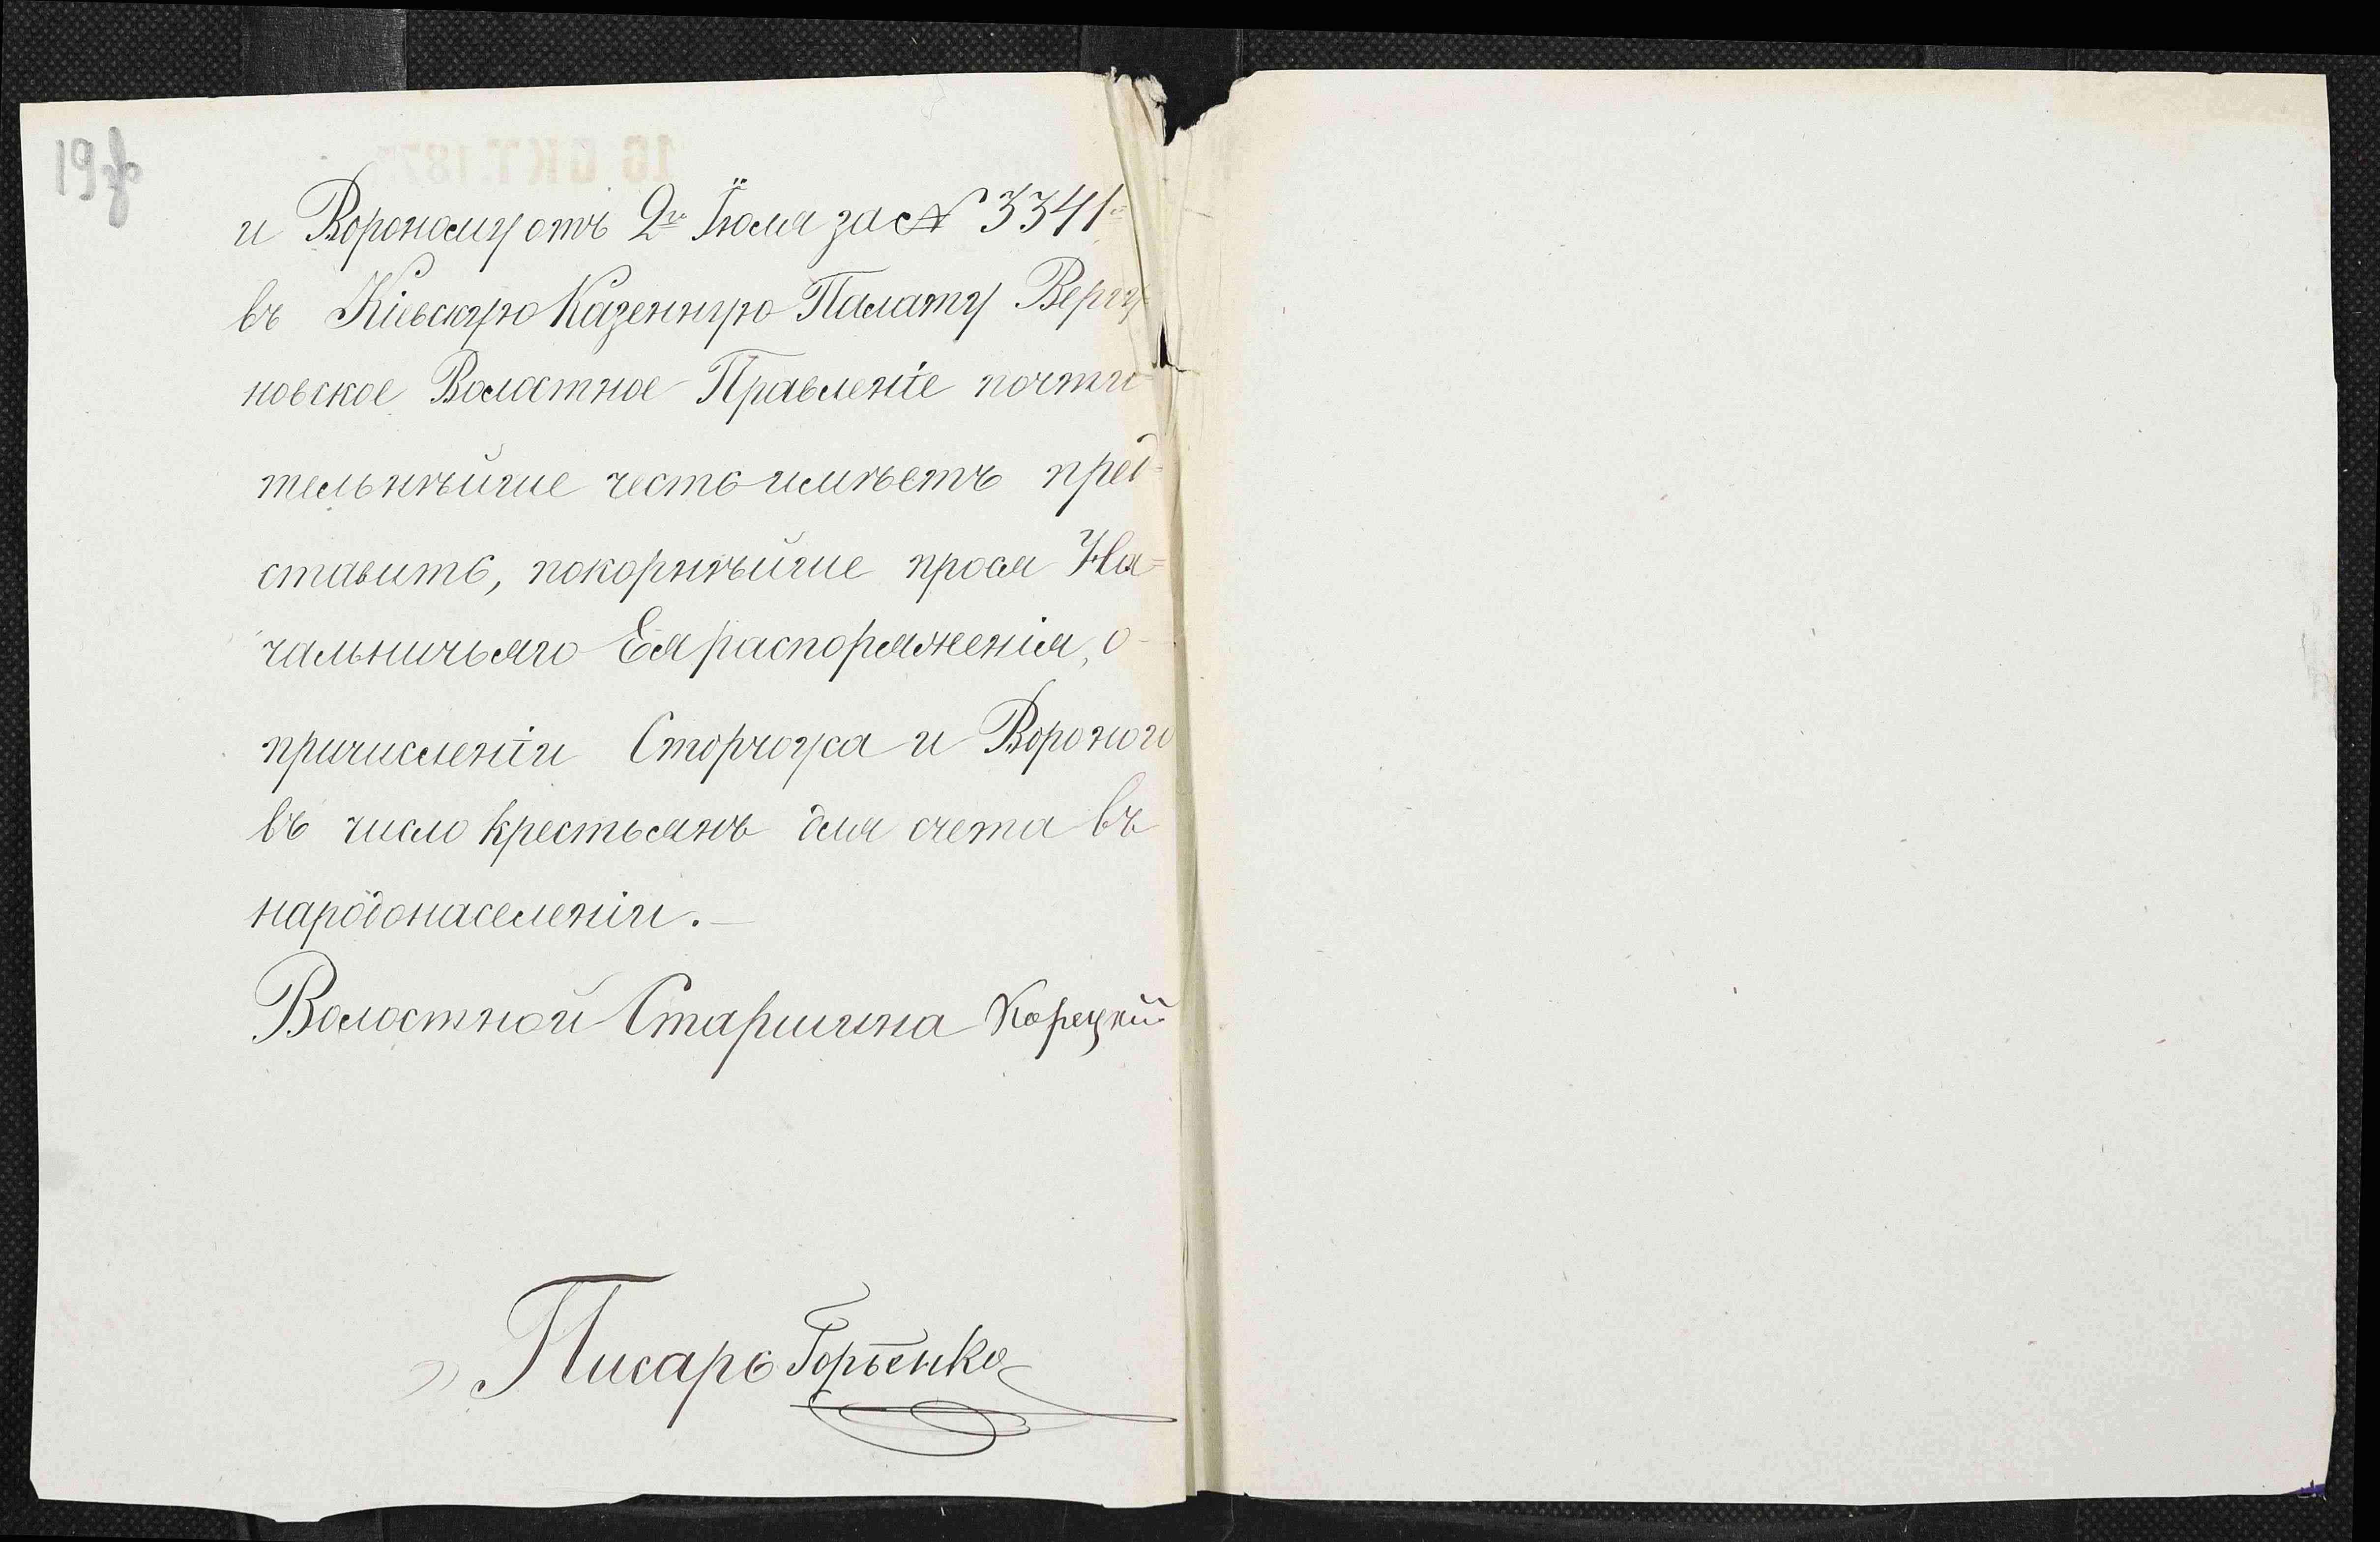 19 зв
и Вороному отъ 2го Іюля за № 3341=
въ Кіевскую Казенную Палату Вергу
новское Волостное Правленіе почти-
тельнѣйше честь имѣетъ пред-
ставить, покорнѣйше прося На=
чальничьяго Ея распоряженія, о-
причисленіи Сторчоуса и Вороного
въ число крестьянъ для счета въ
народонаселеніи.—
Волостной Старшина Корецкій
Писарь Горбенко